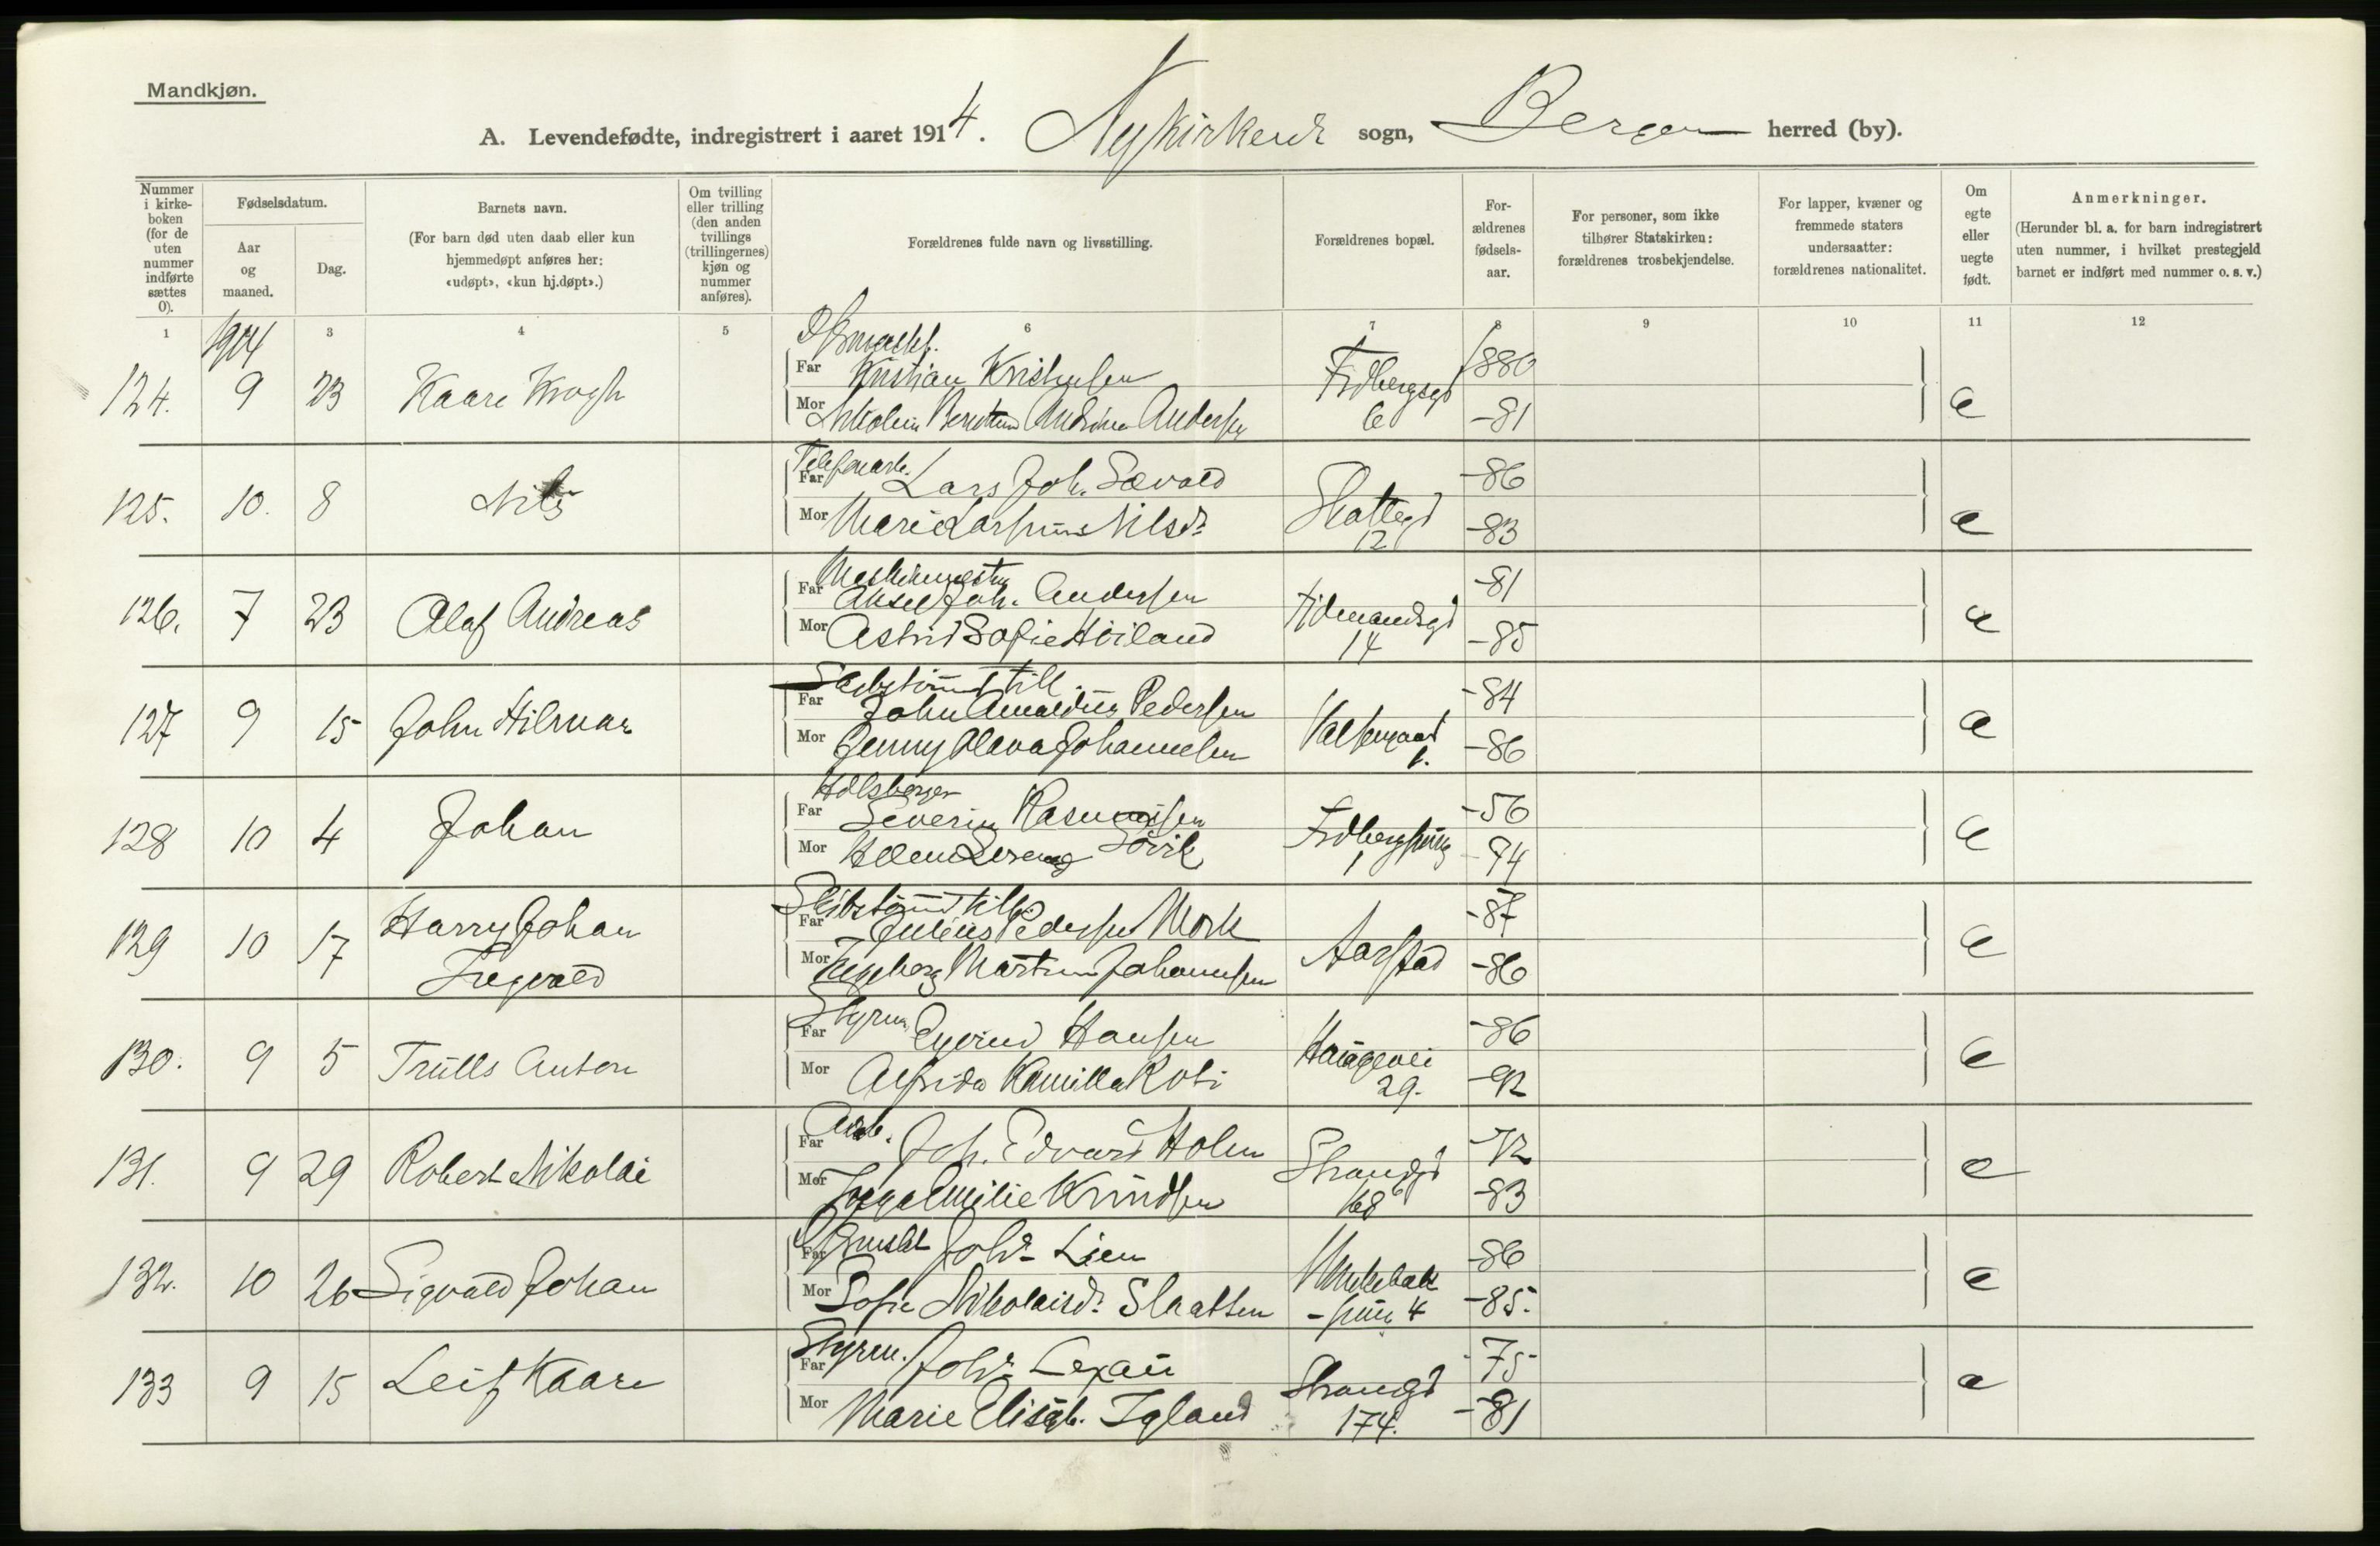 Mandkjøn.
A. Levendefødte, indregistrert i aaret 1914. Nykirkens sogn, Bergen herred (by).
Nummer i kirkeboken (for de uten nummer indførte sættes 0).
Fødselsdatum.
Aar og maaned.
Dag.
Barnets navn.
(For barn død uten daab eller kun hjemmedøpt anføres her: «udøpt», «kun hj.døpt».)
Om tvilling eller trilling (den anden tvillings (trillingernes) kjøn og nummer anføres).
Forældrenes fulde navn og livsstilling.
Forældrenes bopæl.
Forældrenes fødselsaar.
For personer, som ikke tilhører Statskirken: forældrenes trosbekjendelse.
For lapper, kvæner og fremmede staters undersaatter: forældrenes nationalitet.
Om egte eller uegte født.
Anmerkninger.
(Herunder bl. a. for barn indregistrert uten nummer, i hvilket prestegjeld barnet er indført med nummer o. s. v.)
1 3 4 5 6 7 8 9 10 11 12
1914
124. 9 23 Kaare Krogh
Far Kristian Kristensen 1880
Mor Andersen 6 -81 e
125. 10. 8 Nils
Telefonarb.
Far Lars Joh. Sævold -86
Mor Marie Nilsdr. 12 -83 e
126. 7 23 Olaf Andreas
Maskinmester
Far Aksel Joh. Andersen -81
Mor Astrid Sofie Høiland 14 -85 e
127 9 15 John Hilmar
Far John Amaldus Pedersen -84
Mor Jenny Olava Johannesen 1. -86 e
128 10 4 Johan
Far Severin Rasmussen -56
Mor Søvik 1 -94 e
129 10 17 Harry Johan
Far Julius Pedersen Mork Aarstad -87
Mor Ingeborg Johannesen -86 e
130. 9 5 Trulls Anton
Styrm.
Far Eyvind Hansen Haugevei -86
Mor Alfrida Kamilla 29. -92 e
131. 9 29 Robert Nikolai
Arb.
Far Joh. Edvard Holm Strandgd -72
Mor Emilie Knudsen 168 -83 e
132. 10 26 Sigvald Johan
Far Johs. Lien -86
Mor Sofie Nikolaisdr. Slaatten 4 -85. e
133 9 15 Leif Kaare
Styrm.
Far Johs. Lexau Strandgd -75
Mor Marie Elisab. Igland 174. -81 e